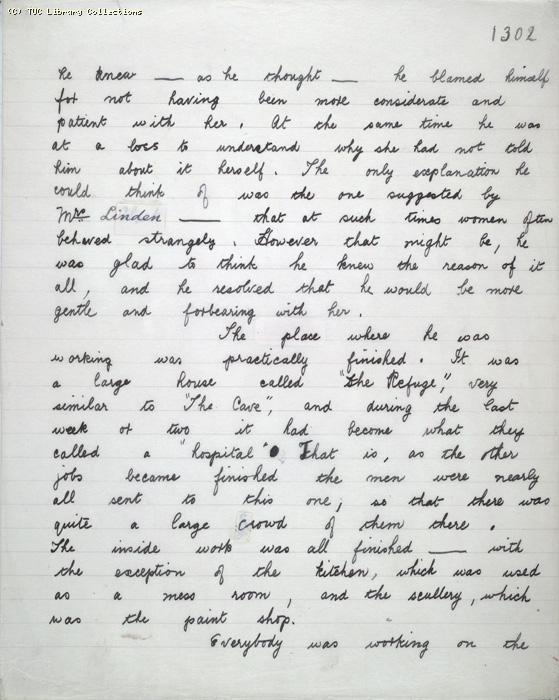 (C) TUC Library Collections
1302
he knew — as he thought — he blamed himself
for not having been more considerate and
patient with her. At the same time he was
at a loss to understand why she had not told
him about it herself. The only explanation he
could think of was the one suggested by
Mrs Linden — that at such times women often
behaved strangely. However that might be, he
was glad to think he knew the reason of it
all, and he resolved that he would be more
gentle and forbearing with her.
The place where he was
working was practically finished. It was
a large house called "The Refuge", very
similar to "The Cave", and during the last
week or two it had become what they
called a "hospital". That is, as the other
jobs became finished the men were nearly
all sent to this one, so that there was
quite a large crowd of them there.
The inside work was all finished — with
the exception of the kitchen, which was used
as a mess room, and the scullery, which
was the paint shop.
Everybody was working on the